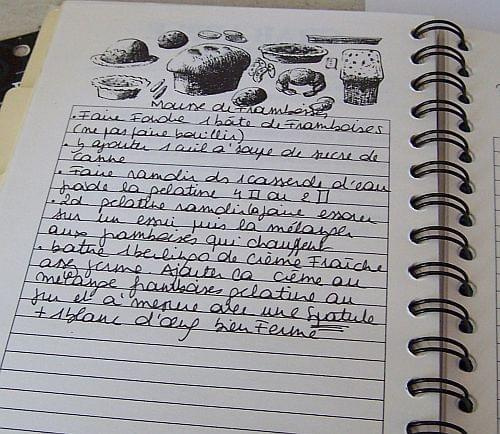 Mousse de Framboises
. Faire Fondre 1 boîte de Framboises
(ne pas faire bouillir)
. y ajouter 1 cuil à soupe de sucre de
canne
. Faire ramolir ds 1 casserole d'eau
froide la gelatine 4 ou 2
. 2d gelatine ramolie faire essorer
sur un essui puis la mélanger
aux framboises qui chauffent
. batre 1 berlingo de crème Fraîche
assez ferme Ajouter la crème au
mélange framboises gelatine au
fur et à mesure avec une Spatule
+ 1 blanc d'oeuf bien Ferme